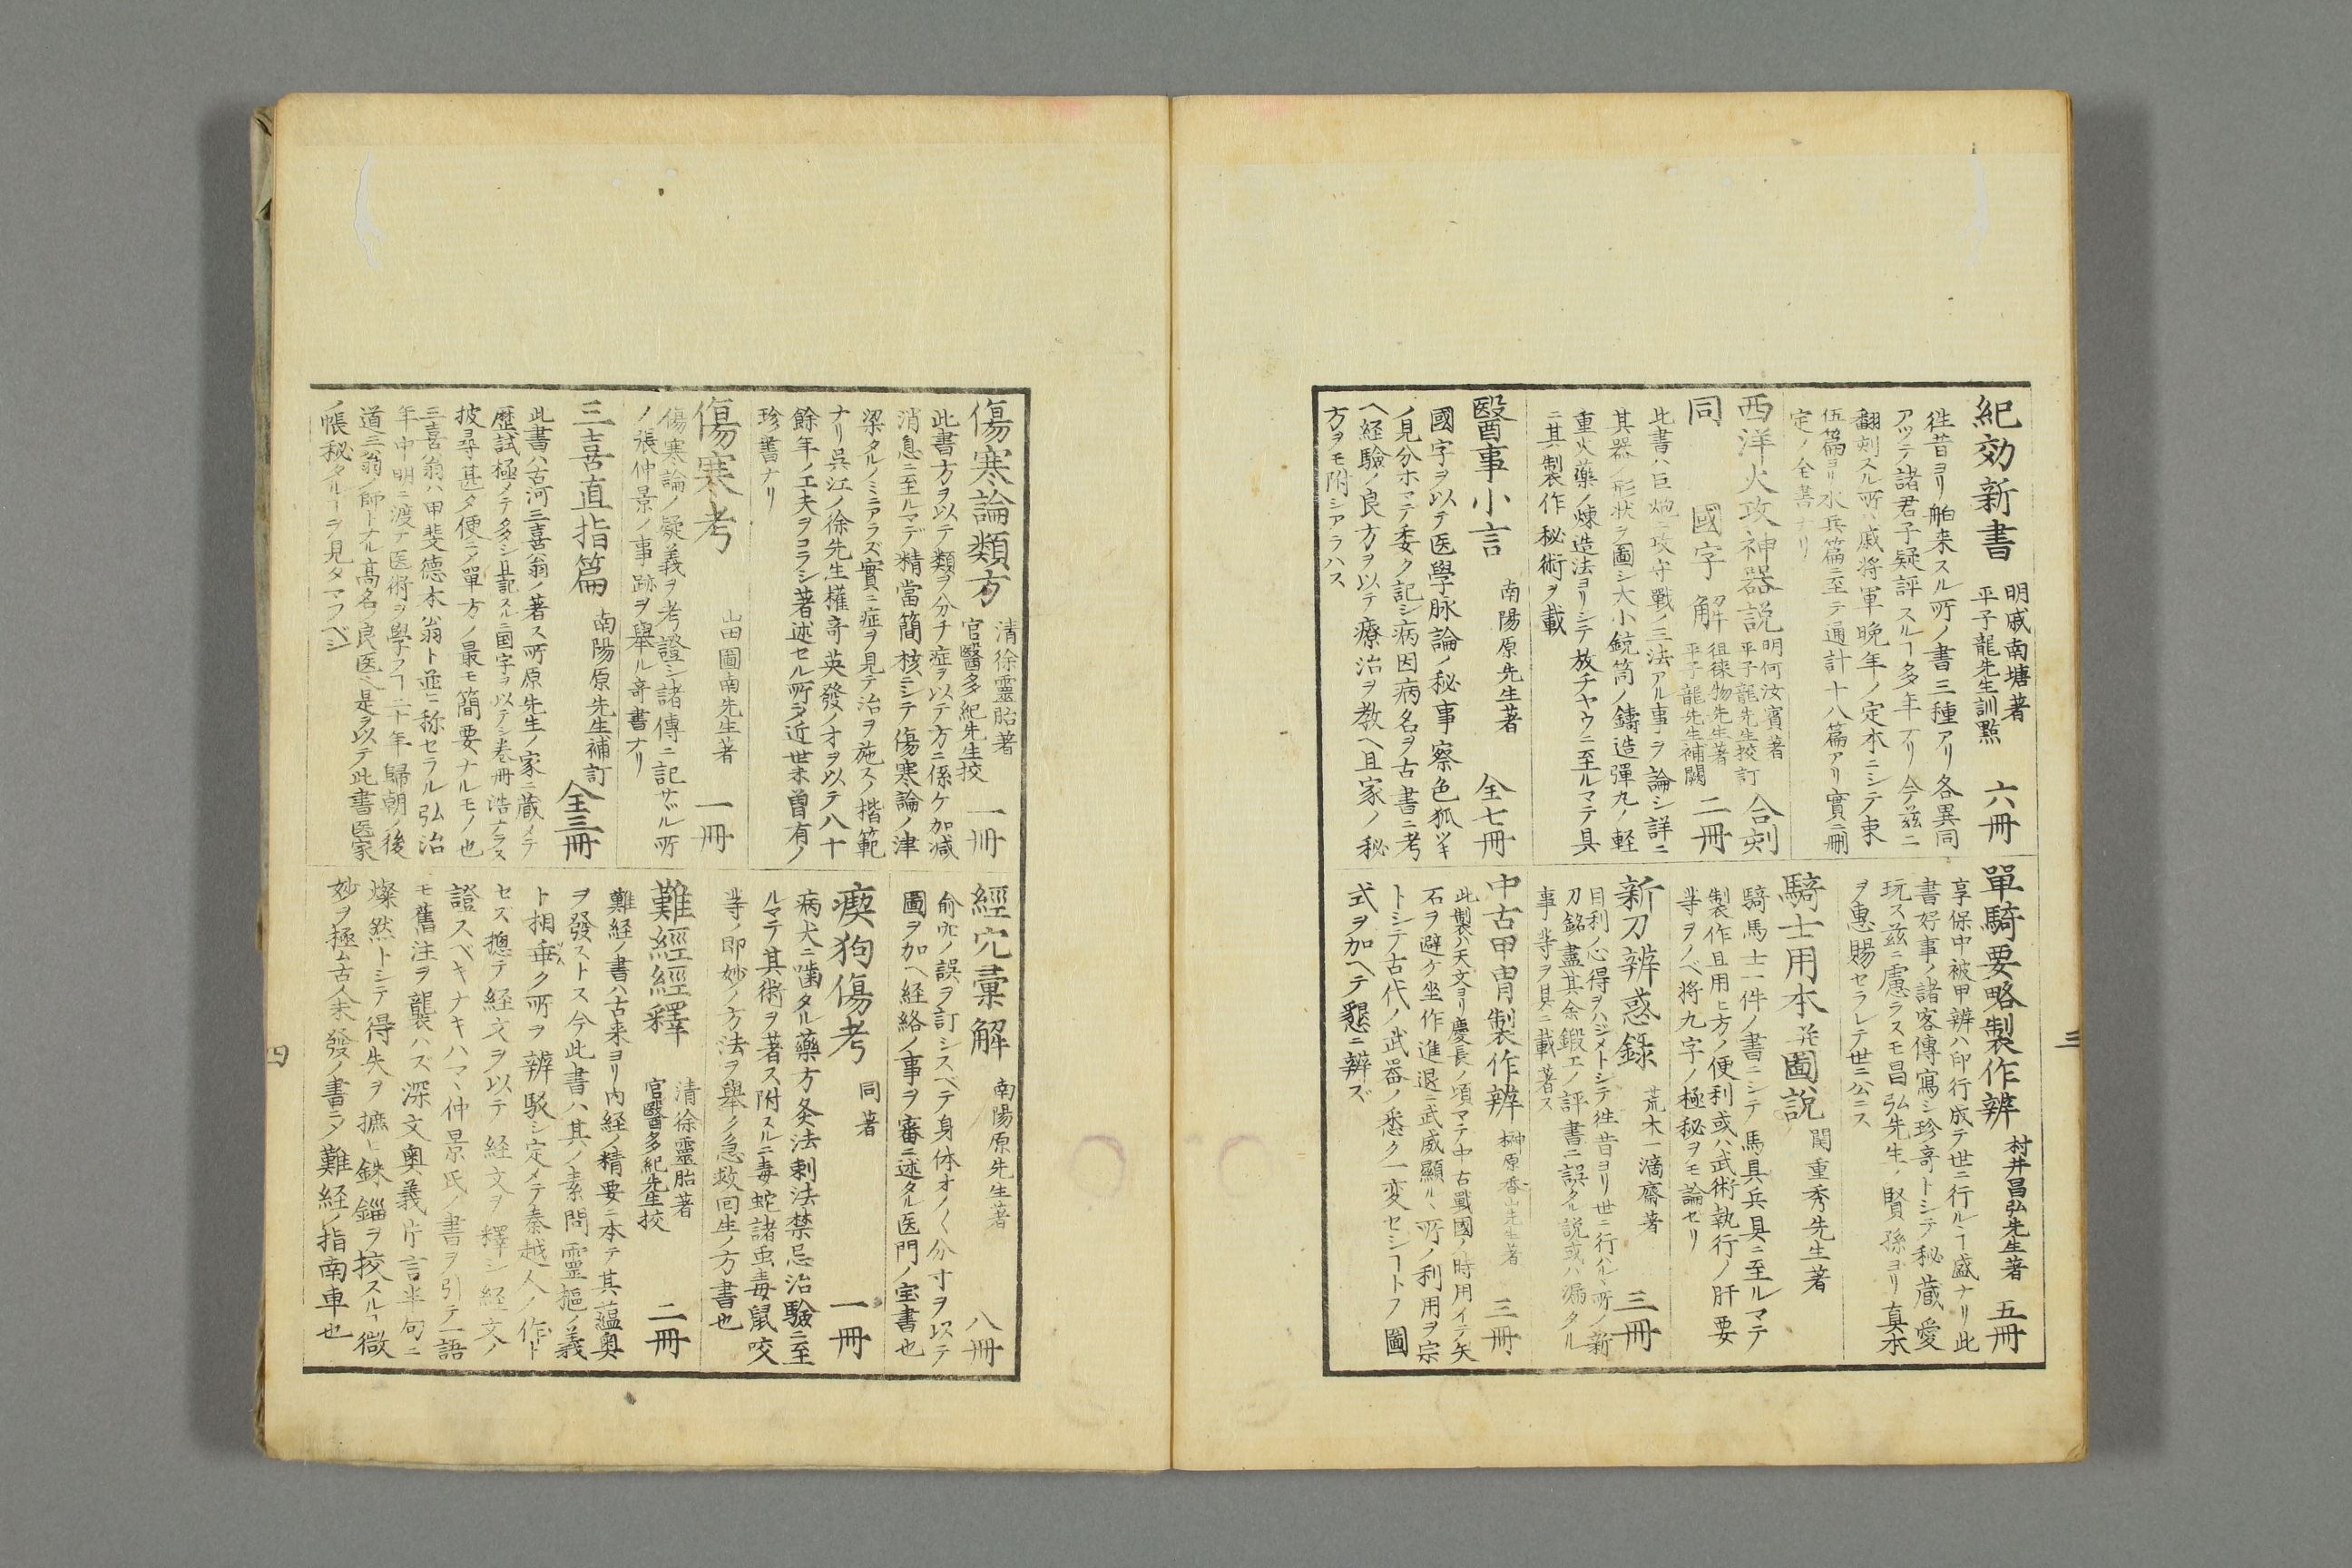 紀効新書
明戚南塘著
平子龍先生訓點
六冊
徃昔ヨリ舶来スル所ノ書三種アリ各異同
アツテ諸君子疑評スルヿ多年ナリ今茲ニ
翻刻スル所ハ戚将軍晩年ノ定本ニシテ束
伍篇ヨリ水兵篇ニ至テ通計十八篇アリ實ニ刪
定ノ全書ナリ
西洋火攻神器説
明何汝賓著
平子龍先生挍訂
合刻
同 國字解
徂徠物先生著
平子龍先生補闕
二冊
此書ハ巨炮ニ攻守戰ノ三法アル事ヲ論シ詳ニ
其器ノ形状ヲ圖シ大小銃筒ノ鑄造彈丸ノ軽
重火藥ノ煉造法ヨリシテ放チヤウニ至ルマテ具
ニ其製作秘術ヲ載
醫事小言
南陽原先生著
全七冊
國字ヲ以テ医學脉論ノ秘事察色狐ツキ
ノ見分ホマテ委ク記シ病因病名ヲ古書ニ考
ヘ経驗ノ良方ヲ以テ療治ヲ教ヘ且家ノ秘
方ヲモ附シアラハス
單騎要略製作辨
村井昌弘先生著
五冊
享保中被甲辨ハ印行成テ世ニ行ルヿ盛ナリ此
書好事ノ諸客傳寫シ珍竒トシテ秘蔵愛
玩ス茲ニ慮ラスモ昌弘先生ノ賢孫ヨリ真本
ヲ惠賜セラレテ世ニ公ニス
騎士用本并圖説
関重秀先生著
騎馬士一件ノ書ニシテ馬具兵具ニ至ルマテ
製作且用ヒ方ノ便利或ハ武術執行ノ肝要
等ヲノベ将九字ノ極秘ヲモ論セリ
新刀辨惑録
荒木一滴齋著
三冊
目利ノ心得ヲハジメトシテ徃昔ヨリ世ニ行ハルヽ所ノ新
刀銘盡其余鍛工ノ評書ニ誤タル説或ハ漏タル
事等ヲ具ニ載著ス
中古甲冑製作辨
榊原香山先生著
三冊
此製ハ天文ヨリ慶長ノ頃マテ中古戰國ノ時用イテ矢
石ヲ避ケ坐作進退ニ武威顯ルヽ所ノ利用ヲ宗
トシテ古代ノ武器ノ悉ク一変セシヿトフ圖
式ヲ加ヘテ懇ニ辨ズ
三
傷寒論類方
清徐靈胎著
官醫多紀先生挍
一冊
此書方ヲ以テ類ヲ分チ症ヲ以テ方ニ係ケ加減
消息ニ至ルマデ精當簡核ニシテ傷寒論ノ津
梁タルノミニアラズ實ニ症ヲ見テ治ヲ施スノ楷範
ナリ呉江ノ徐先生權竒英發ノ才ヲ以テ八十
餘年ノ工夫ヲコラシ著述セル所ヲ近世未曽有ノ
珍書ナリ
傷寒考
山田圖南先生著
一冊
傷寒論ノ疑義ヲ考證シ諸傳ニ記サヾル所
ノ張仲景ノ事跡ヲ舉ル竒書ナリ
三喜直指篇
南陽原先生補訂
全三冊
此書ハ古河三喜翁ノ著ス所原先生ノ家ニ蔵メテ
歴試極メテ多シ且記スルニ国字ヲ以テシ巻冊浩ナラス
披尋甚タ便ニ〆單方ノ最モ簡要ナルモノ也
三喜翁ハ甲斐德本翁ト並ニ称セラル弘治
年中明ニ渡テ医術ヲ學フヿ二十年歸朝ノ後
道三翁ノ師トナル高名ノ良医也是ヲ以テ此書医家
ノ帳秘タルヿヲ見タマフベシ
經穴彙解
南陽原先生著
八冊
俞穴ノ誤ヲ訂シスベテ身体オノ〱分寸ヲ以テ
圖ヲ加ヘ経絡ノ事ヲ審ニ述タル医門ノ宝書也
瘈狗傷考
同著
一冊
病犬ニ噛タル藥方灸法刺法禁忌治驗ニ至
ルマテ其術ヲ著ス附スルニ毒蛇諸虫毒鼠咬
等ノ即妙ノ方法ヲ舉ク急救回生ノ方書也
難經經釋
清徐靈胎著
官醫多紀先生挍
二冊
難経ノ書ハ古来ヨリ内経ノ精要ニ本テ其蘊奥
ヲ發ストス今此書ハ其ノ素問靈樞ノ義
ト相乖ク所ヲ辨駁シ定メテ秦越人ノ作ト
セズ摠テ経文ヲ以テ経文ヲ釋シ経文ノ
證スベキナキハマヽ仲景氏ノ書ヲ引テ一語
モ舊注ヲ襲ハズ深文奥義片言半句ニ
燦然トシテ得失ヲ摭ヒ銖錙ヲ挍スルヿ微
妙ヲ極ム古人未發ノ書ニ〆難経ノ指南車也
四